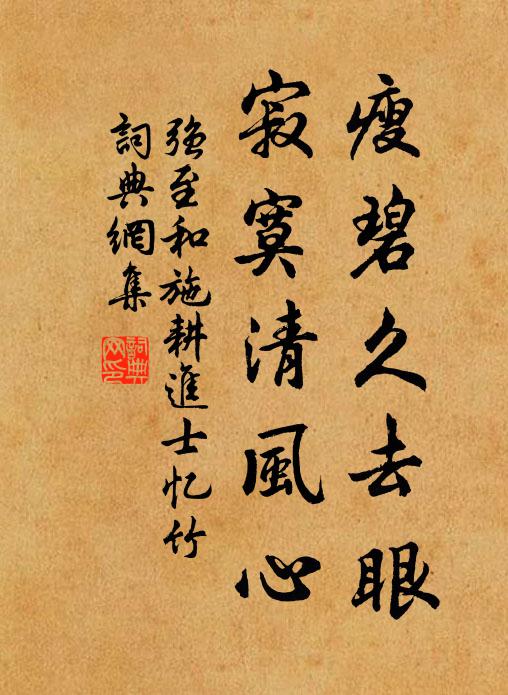 瘦碧久去眼
寂寞清風心
強至和施耕進士忆竹
詞典網集
詞典網印